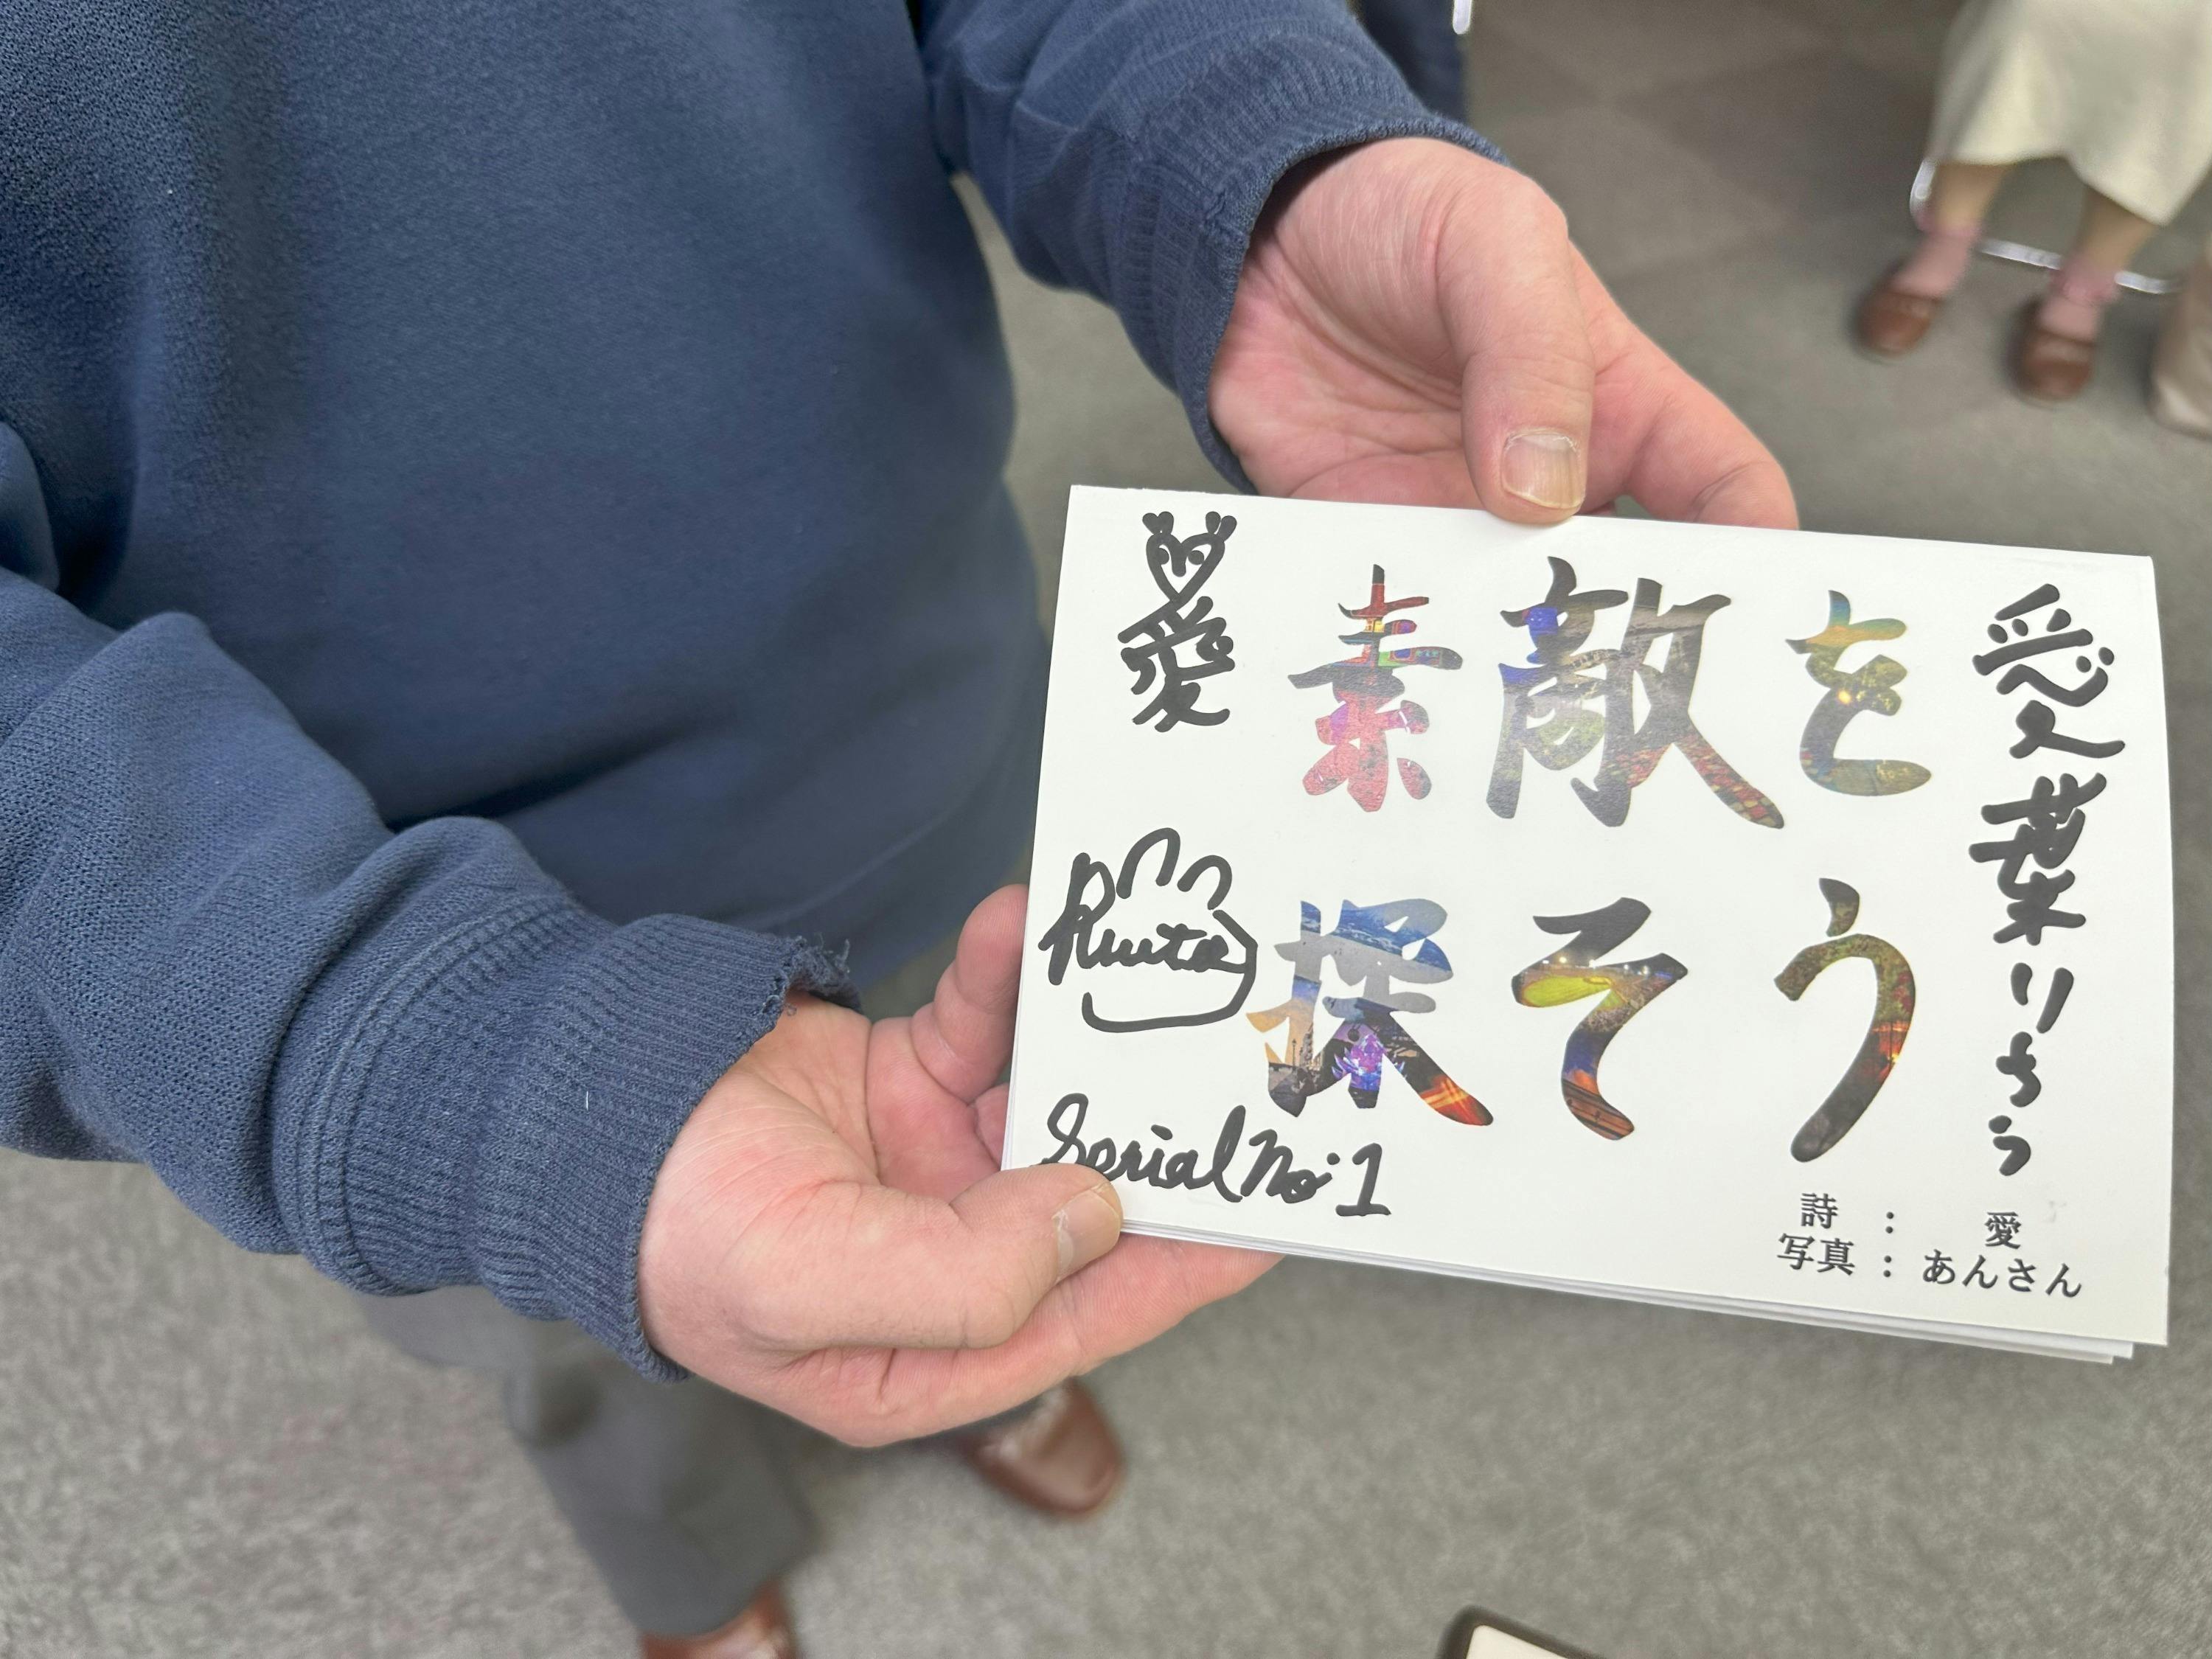 素敵を
探そう
愛
愛葉りゅう
Ryuta
Serial No.1
詩 : 愛
写真 : あんさん